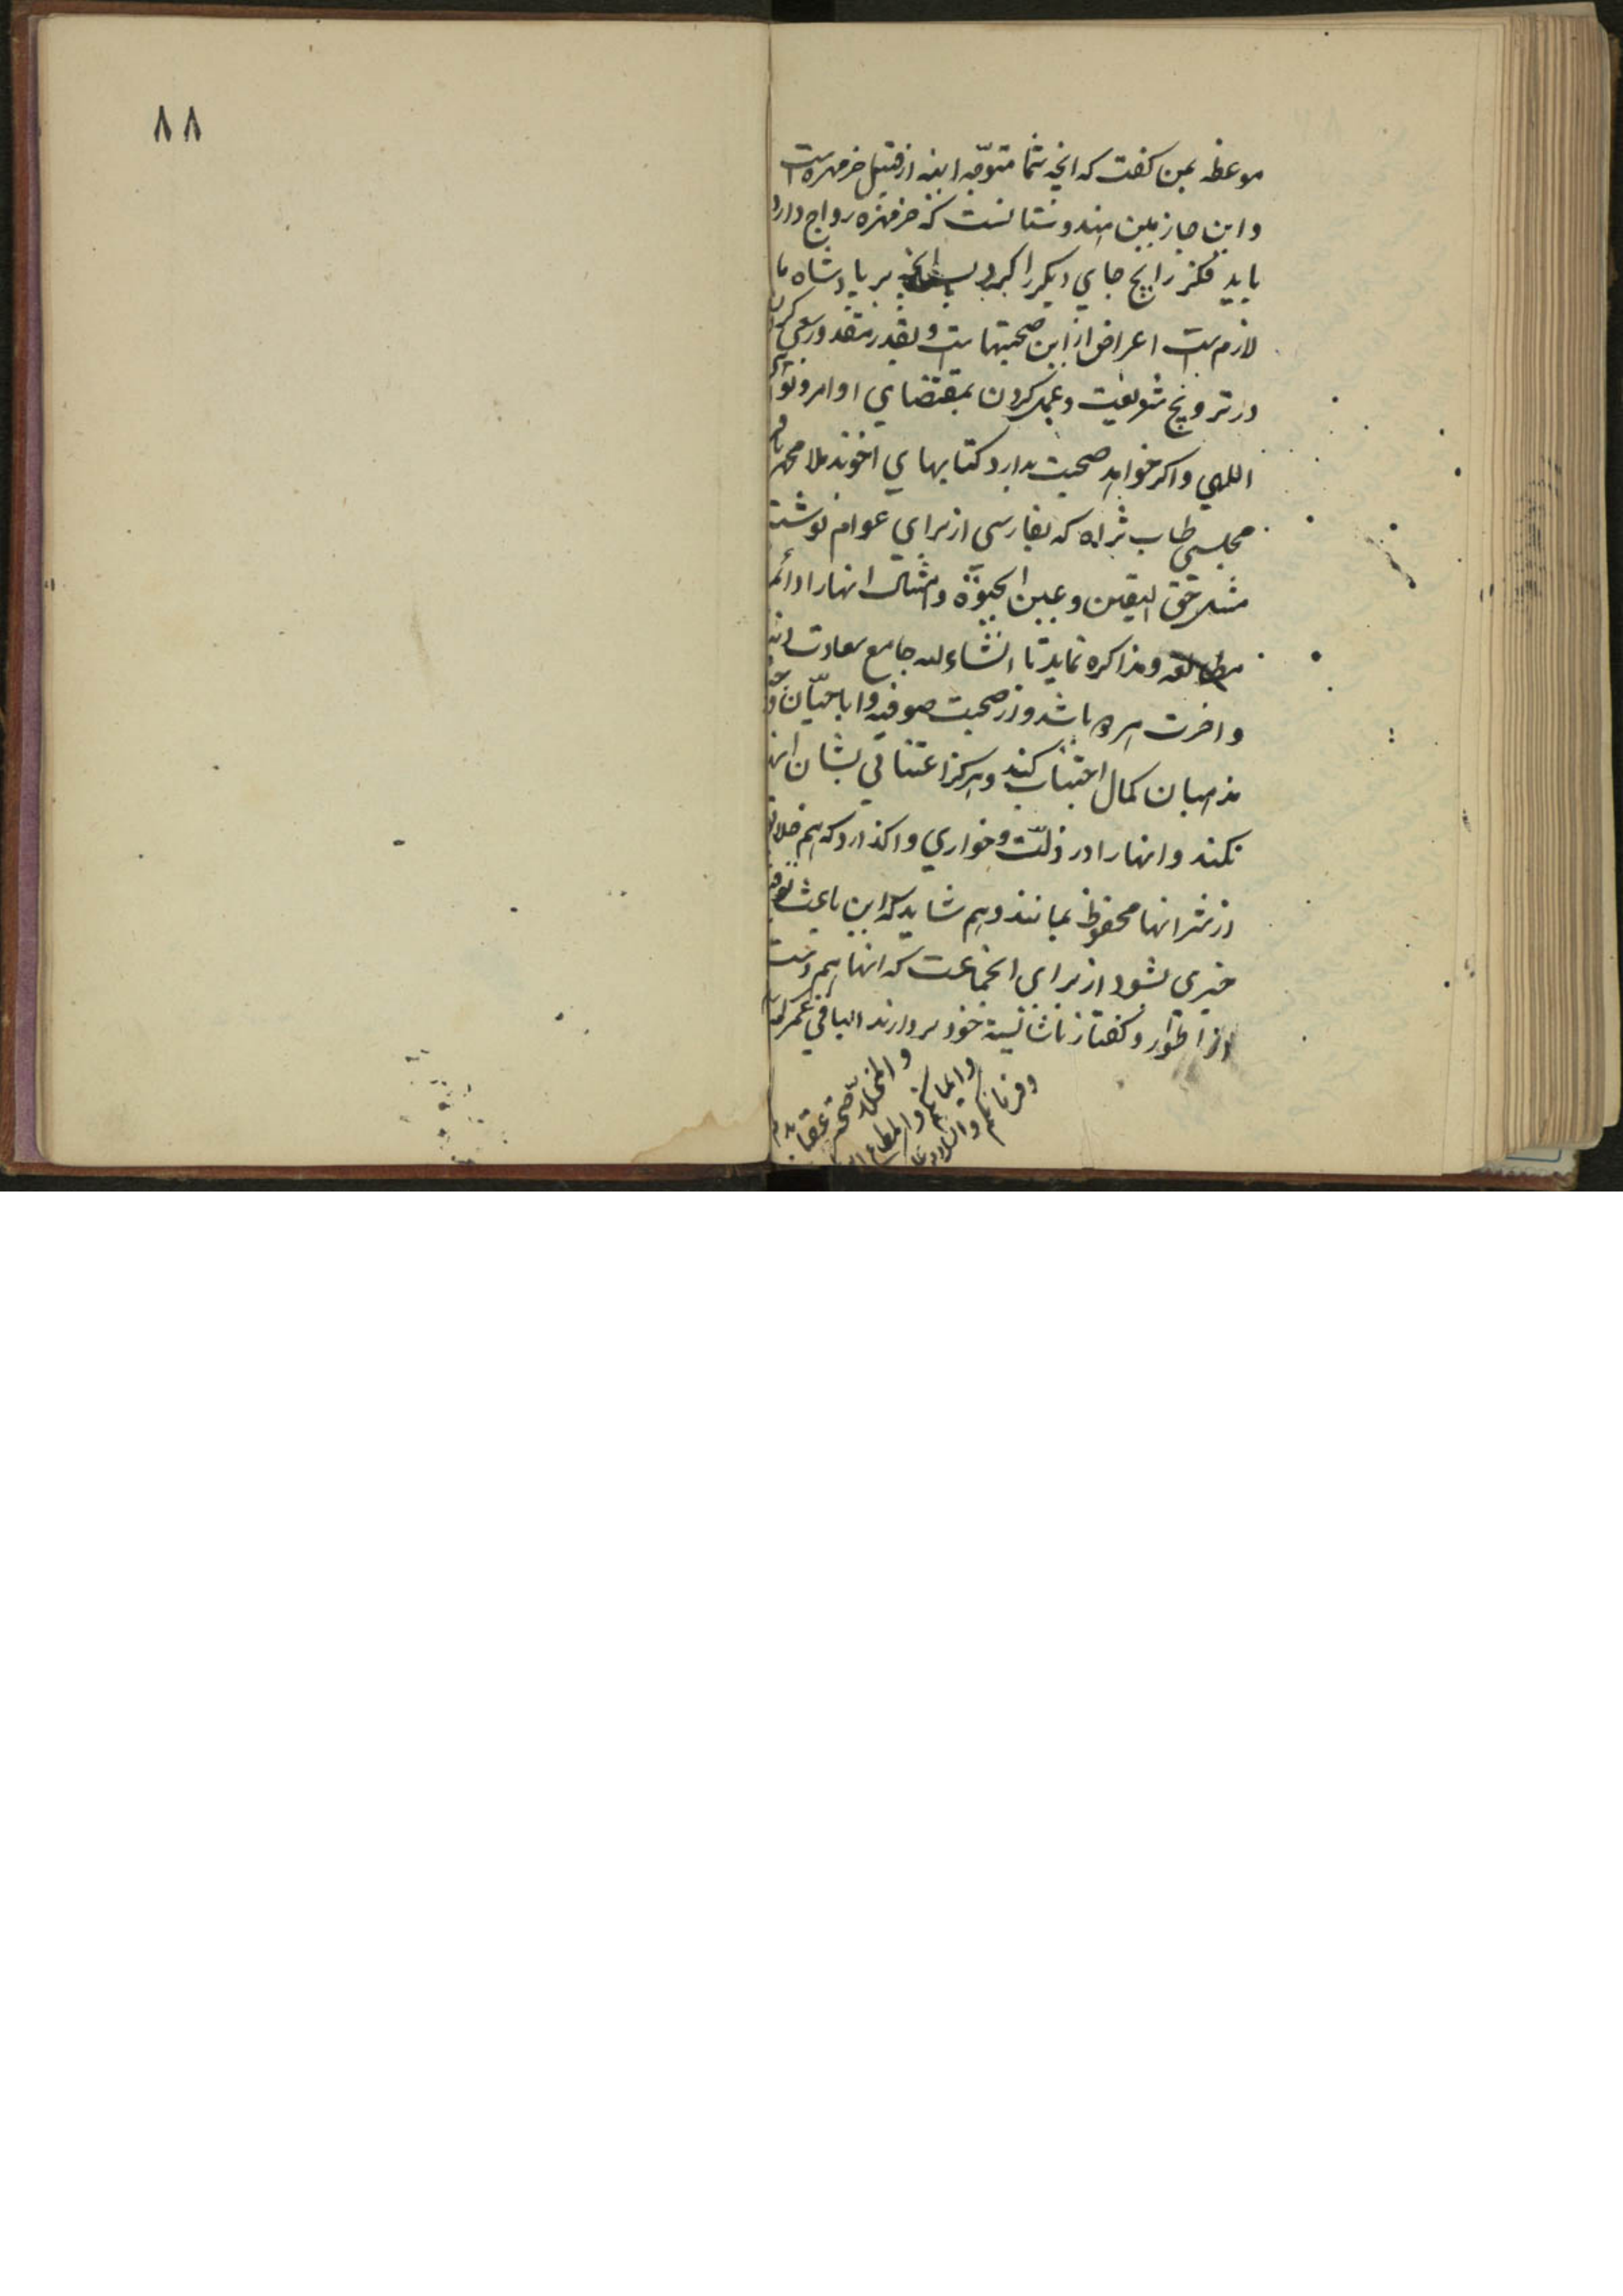 موعظه بمن کفت که انچه شما متوجه انید از قبیل خرمهره است
و این جا زمین هندوستانست که خرمهره رواج دارد
باید فکر رایج جای دیکر را کرد پس انچه بر پادشاه ما
لازمست اعراض از این صحبتهاست و بقدر مقدور سعی کردن
در ترویج شریعت و عمل کردن بمقتضای اوامر و نواهی
اللهی و اکر خواهد صحبت بدارد کتابهای اخوند ملا محمد باقر
مجلسی طاب ثراه که بفارسی از برای عوام نوشته
مثل حق الیقین و عین الحیوة و امثال انها را دائم
مطالعه و مذاکره نماید تا انشاء الله جامع سعادت دنیا
و اخرت هر دو باشد و از صحبت صوفیه و اباحیان و
مذهبان کمال اجتناب کند و هرکز اعتنائی بشان انها
نکند و انها را در ذلت و خواری واکذارد که هم خلایق
از شر انها محفوظ بمانند و هم شاید که این باعث توفیق
خیری بشود از برای انجماعت که انها هم دست
از اطوار و کفتار ناشایسته خود بردارند الباقی عمرکم
و المخلد صحة عقایدکم
و ایمانکم و المطاع
و فرمانکم و السلام
۸۸